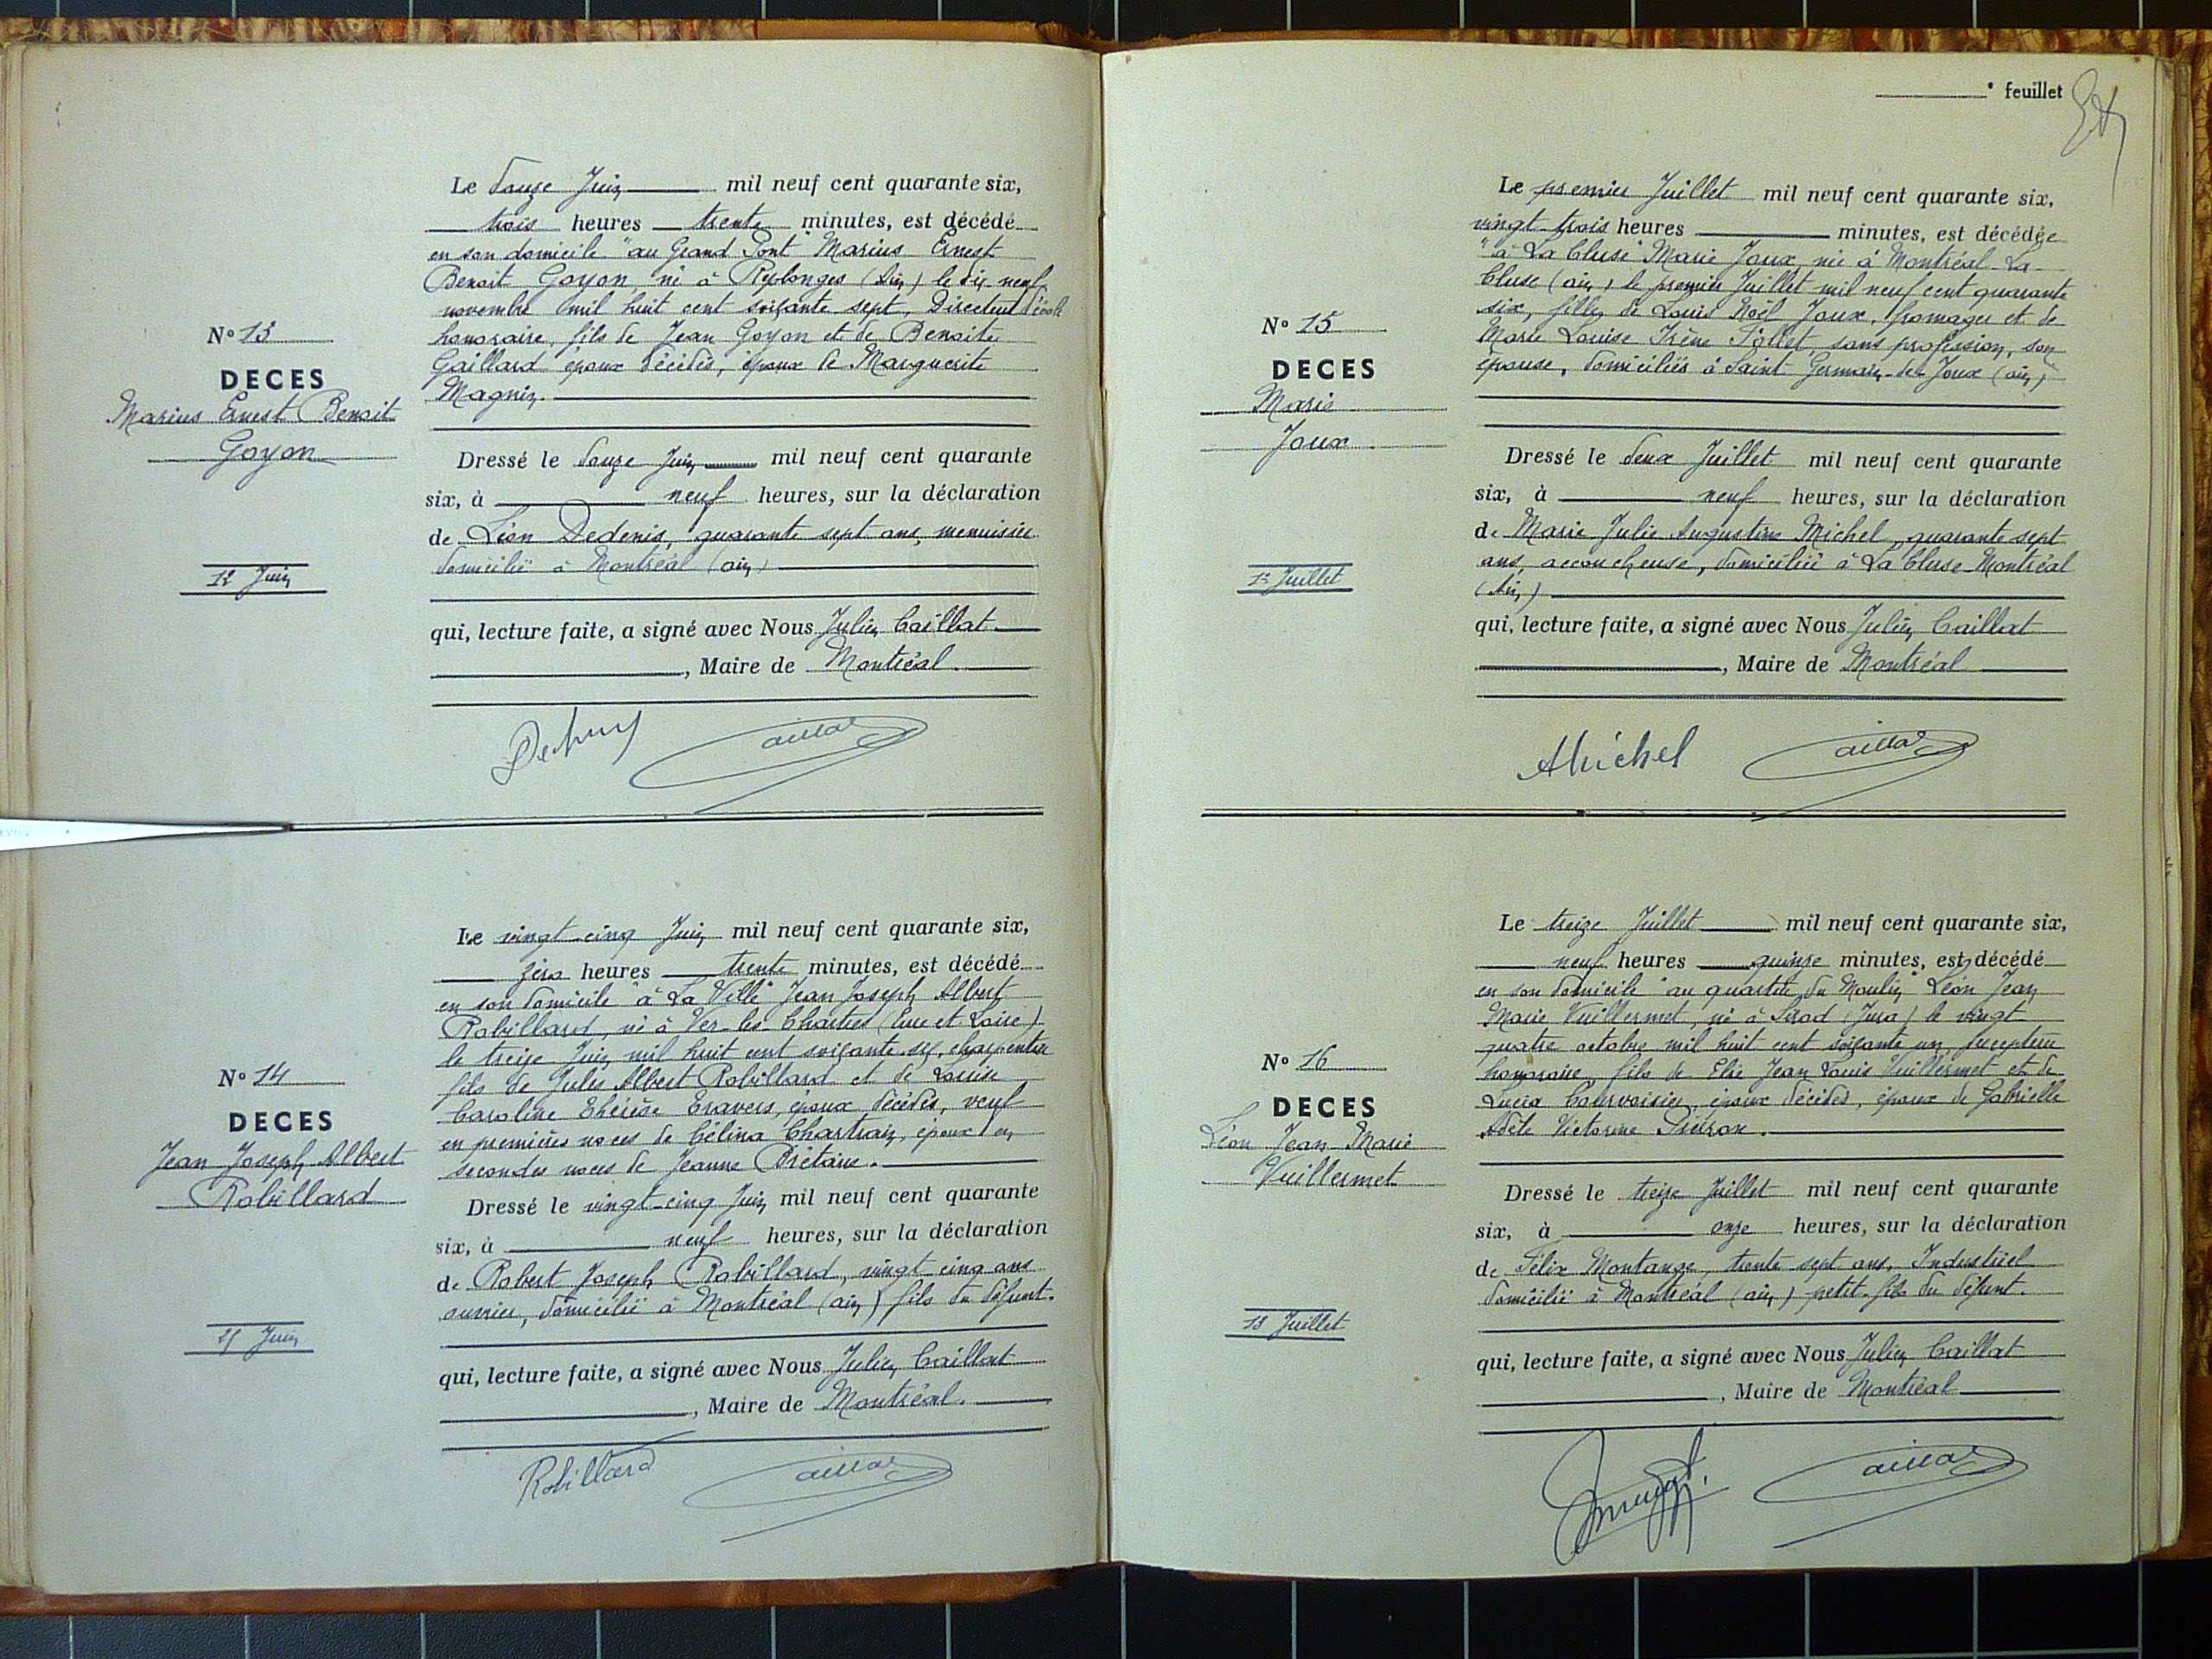 Le douze Juin mil neuf cent quarante six,
trois heures trente minutes, est décédé
en son domicile "au Grand Pont" Marius Ernest
Benoit Goyon, né à Replonges (Ain) le dix neuf
novembre mil huit cent soixante sept, Directeur d'école
honoraire, fils de Jean Goyon et de Benoite
Gaillard époux décédés, époux de Marguerite
Magnin.
N° 13
DECES
Marius Ernest Benoit
Goyon
12 Juin
Dressé le douze Juin mil neuf cent quarante
six, à neuf heures, sur la déclaration
de Léon Dedenis, quarante sept ans, menuisier
domicilié à Montréal (ain)
qui, lecture faite, a signé avec Nous Julien Caillat
, Maire de Montréal.
Le vingt-cinq Juin mil neuf cent quarante six,
zéro heures trente minutes, est décédé
en son domicile "à La Ville" Jean Joseph Albert
Robillard, né à Ver-les-Chartres (Eure et Loire)
le treize Juin mil huit cent soixante six, charpentier
fils de Jules Albert Robillard et de Louise
Caroline Thérèse Travers, époux décédés, veuf
en premières noces de Célina Chartrain, époux en
secondes noces de Jeanne Prétaire.
N° 14
DECES
Jean Joseph Albert
Robillard
25 Juin
Dressé le vingt-cinq Juin mil neuf cent quarante
six, à neuf heures, sur la déclaration
de Robert Joseph Robillard, vingt cinq ans
ouvrier, domicilié à Montréal (ain) fils du défunt.
qui, lecture faite, a signé avec Nous Julien Caillat
, Maire de Montréal.
Robillard
° feuillet
Le premier Juillet mil neuf cent quarante six,
vingt-trois heures minutes, est décédée
"à La Cluse" Marie Joux, née à Montréal-La-
Cluse (ain) le premier Juillet mil neuf cent quarante
six, fille de Louis Noël Joux, fromager et de
Marie Louise Irène Follet, sans profession, son
épouse, domiciliés à Saint-Germain-de-Joux (ain)
N° 15
DECES
Marie
Joux
1er Juillet
Dressé le deux Juillet mil neuf cent quarante
six, à neuf heures, sur la déclaration
de Marie Julie Augustine Michel, quarante sept
ans, accoucheuse, domiciliée à La Cluse-Montréal
(Ain)
qui, lecture faite, a signé avec Nous Julien Caillat
, Maire de Montréal
AMichel
Le treize Juillet mil neuf cent quarante six,
neuf heures quinze minutes, est décédé
en son domicile "au quartier du Moulin" Léon Jean
Marie Vuillermet, né à Sirod (Jura) le vingt
quatre octobre mil huit cent soixante un, percepteur
honoraire, fils de Elie Jean Louis Vuillermet et de
Lucia Courvoisier, époux décédés, époux de Gabrielle
Adèle Victorine
N° 16
DECES
Léon Jean Marie
Vuillermet
13 Juillet
Dressé le treize Juillet mil neuf cent quarante
six, à onze heures, sur la déclaration
de Félix Montange, trente sept ans, Industriel
domicilié à Montréal (ain) petit-fils du défunt.
qui, lecture faite, a signé avec Nous Julien Caillat
, Maire de Montréal